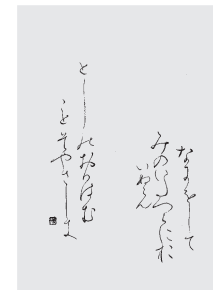 なにをして
みのいたつらにお
いぬらん
としのおもはむ
ことそやさしき